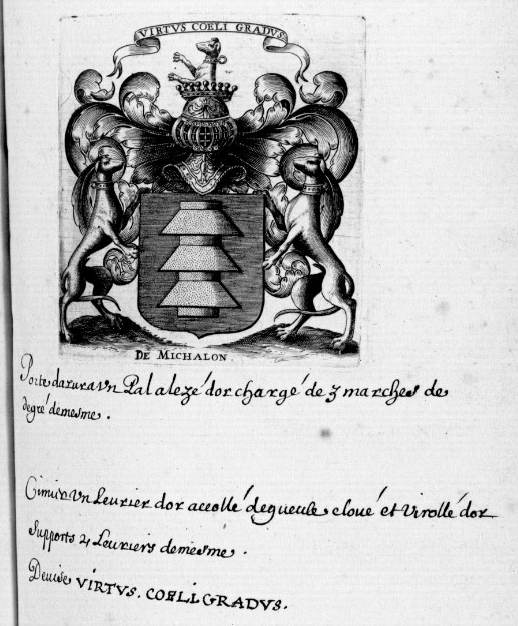 VIRTVS COELI GRADVS
DE MICHALON
Porte dazur a vn Pal alezé dor chargé de 3 marches de
degré demesme.
Cimier vn Leurier dor accollé degueule cloué et virollé dor
Supports 2 Leuriers demesme.
Deuise VIRTVS. COELI GRADVS.